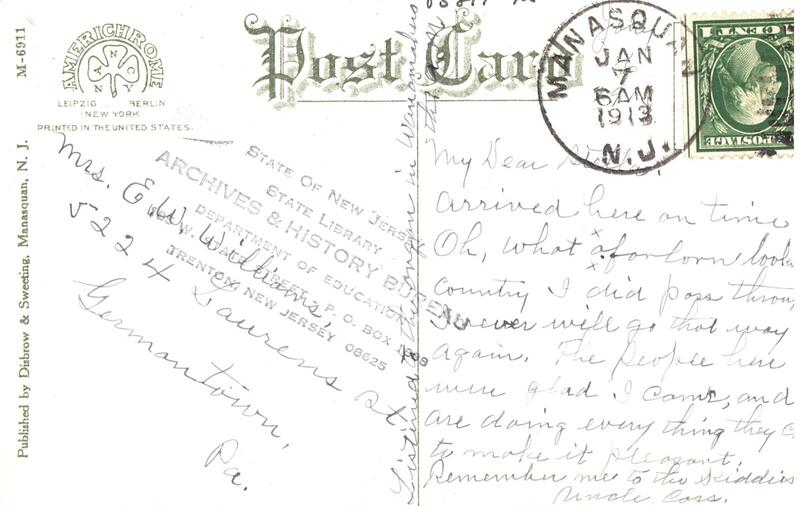 Published by Disbrow & Sweeting, Manasquan, N. J.
M-6911
AMERICHROME
A N C N Y
LEIPZIG BERLIN
NEW YORK
PRINTED IN THE UNITED STATES.
Post Card
MANASQUAN
JAN
7
6 AM
1913
N.J.
1 CENT 1
POSTAGE
STATE OF NEW JERSEY
STATE LIBRARY
ARCHIVES & HISTORY BUREAU
DEPARTMENT OF EDUCATION
W. STATE STREET, P. O. BOX
TRENTON, NEW JERSEY 08625
Mrs. E. W. Williams,
5224 Laurens St.
Germantown,
Pa.
My Dear
arrived here on time
Oh, what a forlorn look
country I did pass throu
Never will go that way
again. The people here
were glad I came, and
are doing every thing they c
to make it pleasant.
Remember me to the Kiddies
Uncle Cass.
Listened to the organ in Wanamakers